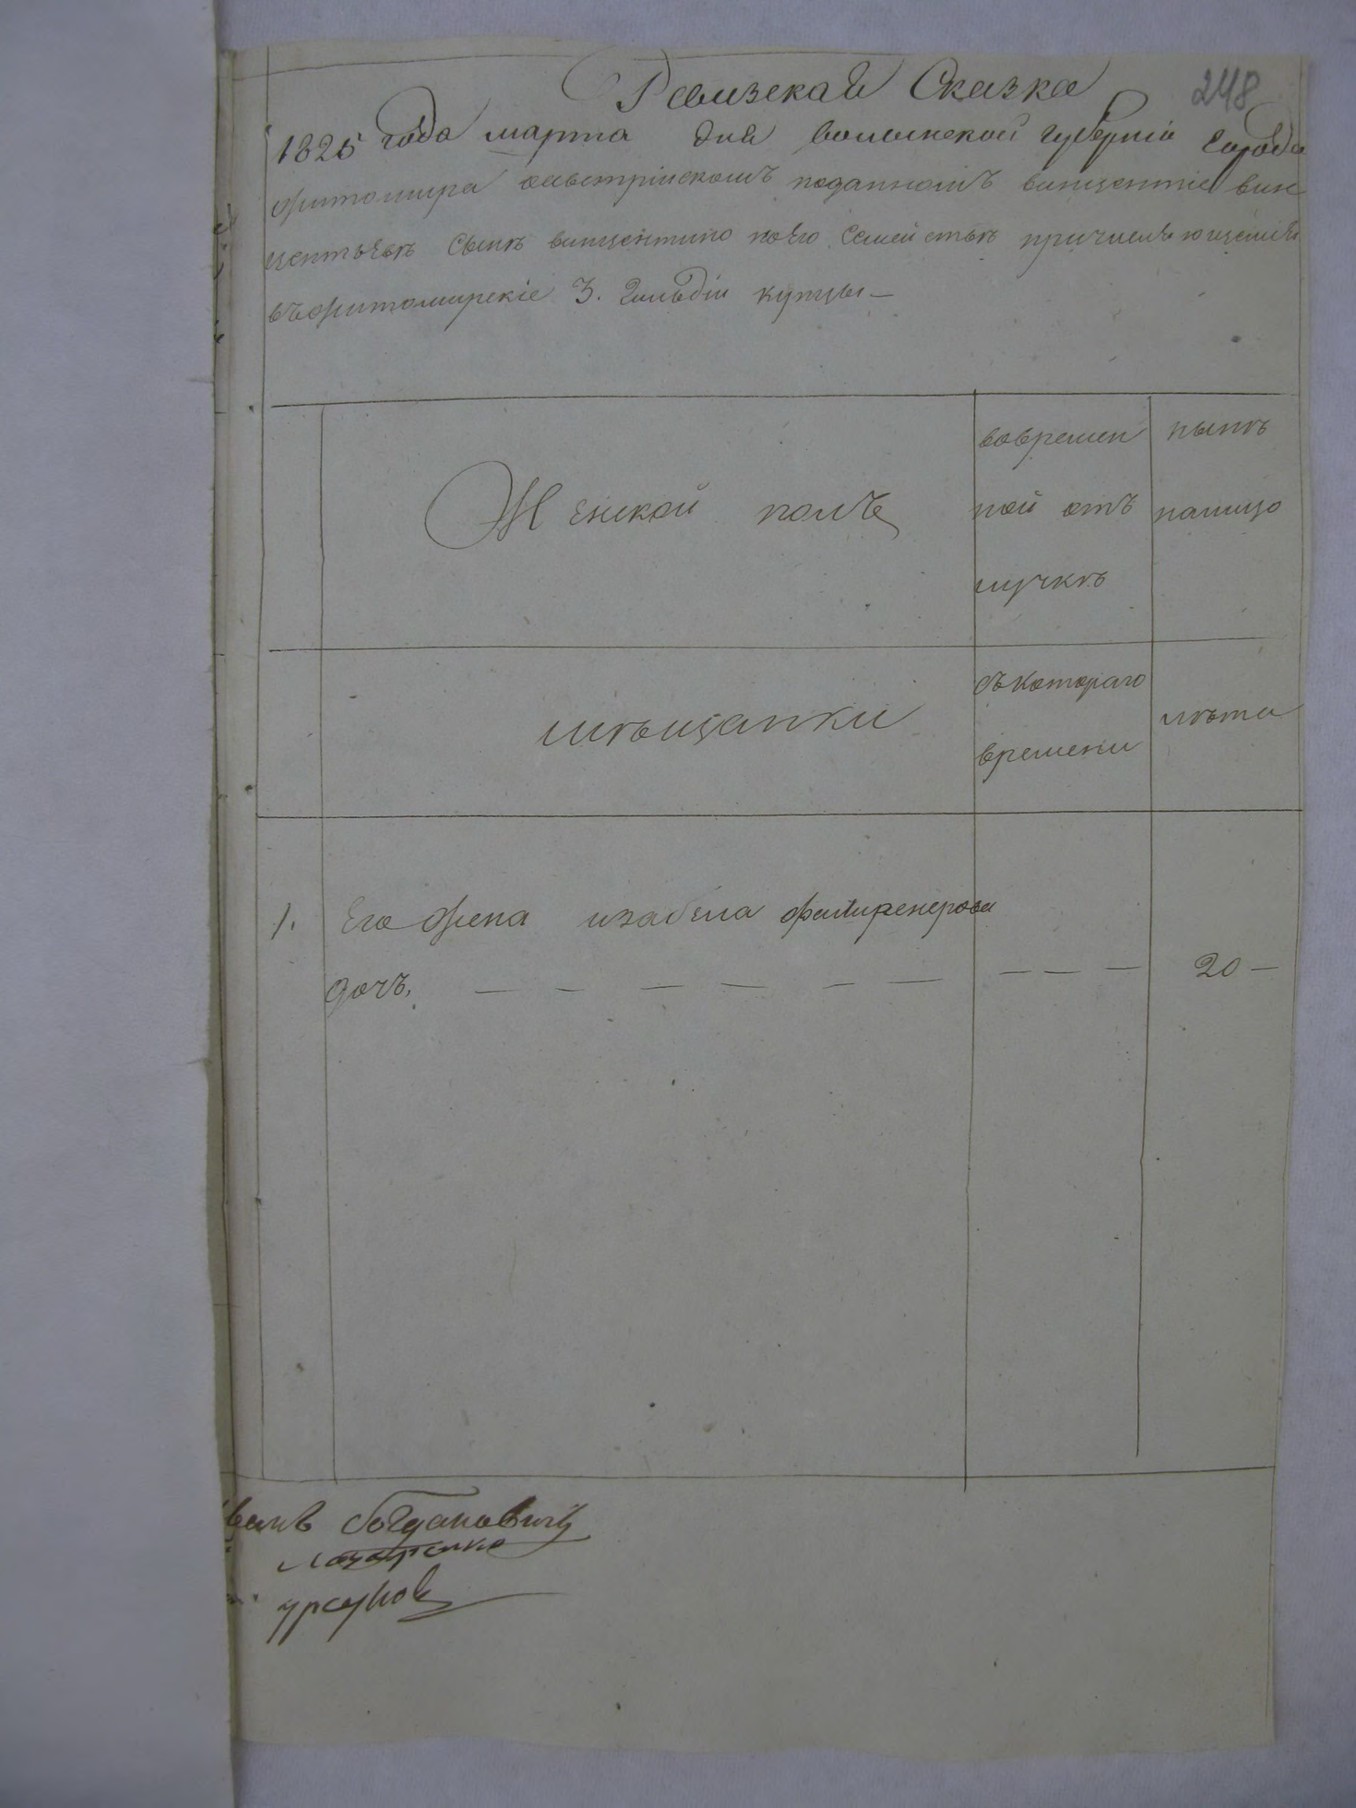 Ревизская Сказка
248
1825 года марта дня волынской губерніи города
житомира оавстрійскомъ поданномъ винцентіе вин
центьевѣ сынѣ винцентино поего семействѣ причисляющемся
въжитомирскіе 3. Гильдіи купцы —
Женской полъ
вовремен
ной отъ
лучкѣ
нынѣ
налицо
мѣщанки
съкотораго
времени
лѣта
1. Его жена изабела
дочъ. — — — — — — — — — 20 —
Богдановичъ